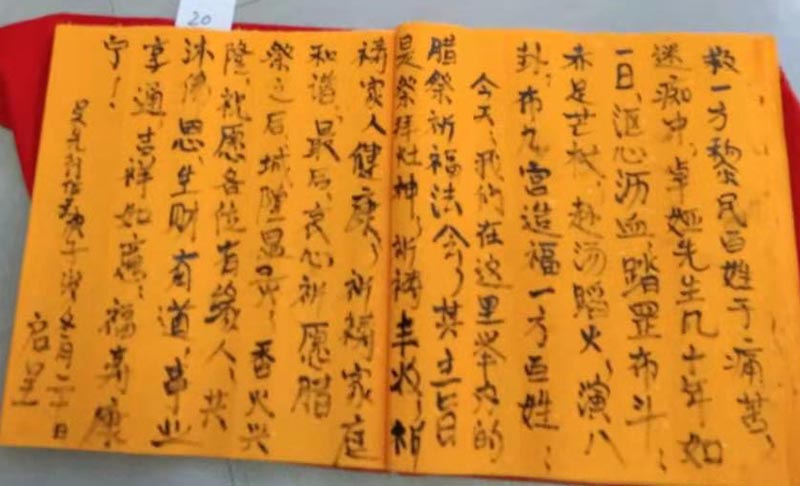 20
救一方黎民百姓于痛苦、
迷痴中,卓娅先生几十年如
一日、沤心沥血、踏罡布斗;
赤足芒杖、赴汤蹈火、演八
卦、布九宫造福一方百姓;
今天、我们在这里举办的
腊祭祈福法会,其主旨
是祭拜灶神,祈祷丰收,祈
祷家人健康,祈祷家庭
和谐,最后,衷心祈愿腊
祭之后,城隍显灵,香火兴
隆,祝愿各位有缘人,共
沐佛恩,生财有道,事业
享通,吉祥如意;福寿康
宁!
二十日